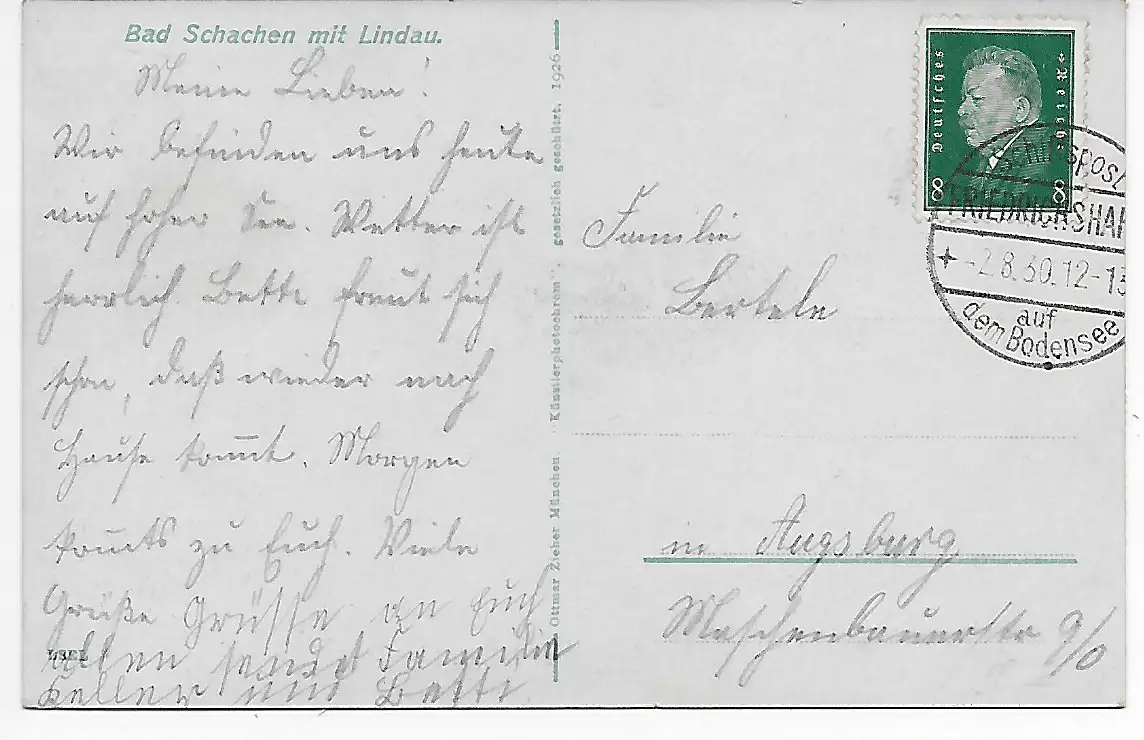 Bad Schachen mit Lindau.
Meine Lieben!
Wir befinden uns heute
auf hoher See. Wetter ist
herrlich. Betti freut sich
schon, daß wieder nach
Hause kommt. Morgen
kommts zu Euch. Viele
Grüße Grüsse an Euch
allen sendet Familie
Keller und Betti
Ottmar Zieher München. "Künstlerphotochrom", gesetzlich geschützt. 1926
Deutsches Reich
8 8
Schiffspost
FRIEDRICHSHAF
-2.8.30.12-13
auf
dem Bodensee
Familie
Bertele
in Augsburg
Maschenbauerstr 9/0